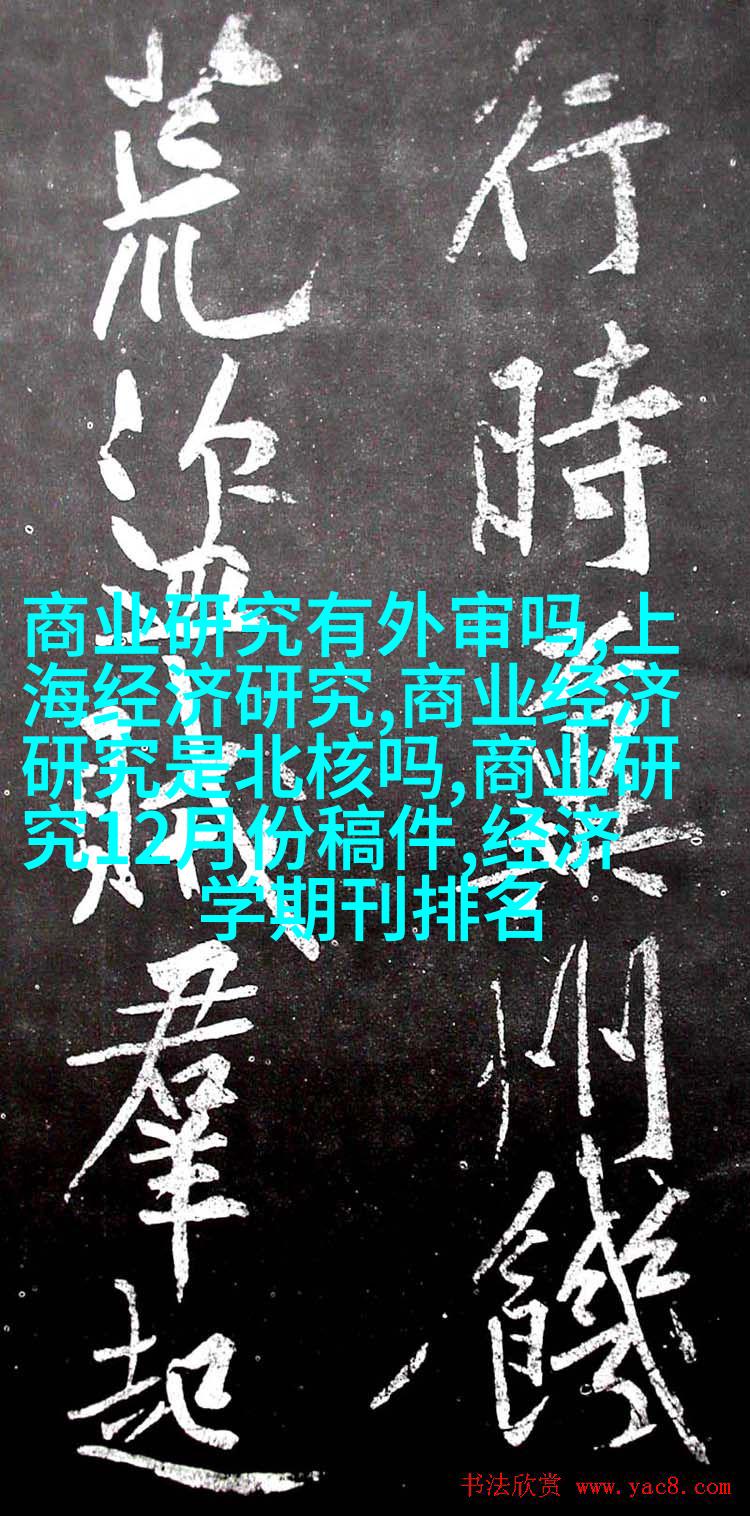 行時冀州饑
荒盜賊羣起
商业研究有外审吗,上
海经济研究,商业经济
研究是北核吗,商业研
究12月份稿件,经济
学期刊排名
书法欣赏 www.yac8.com